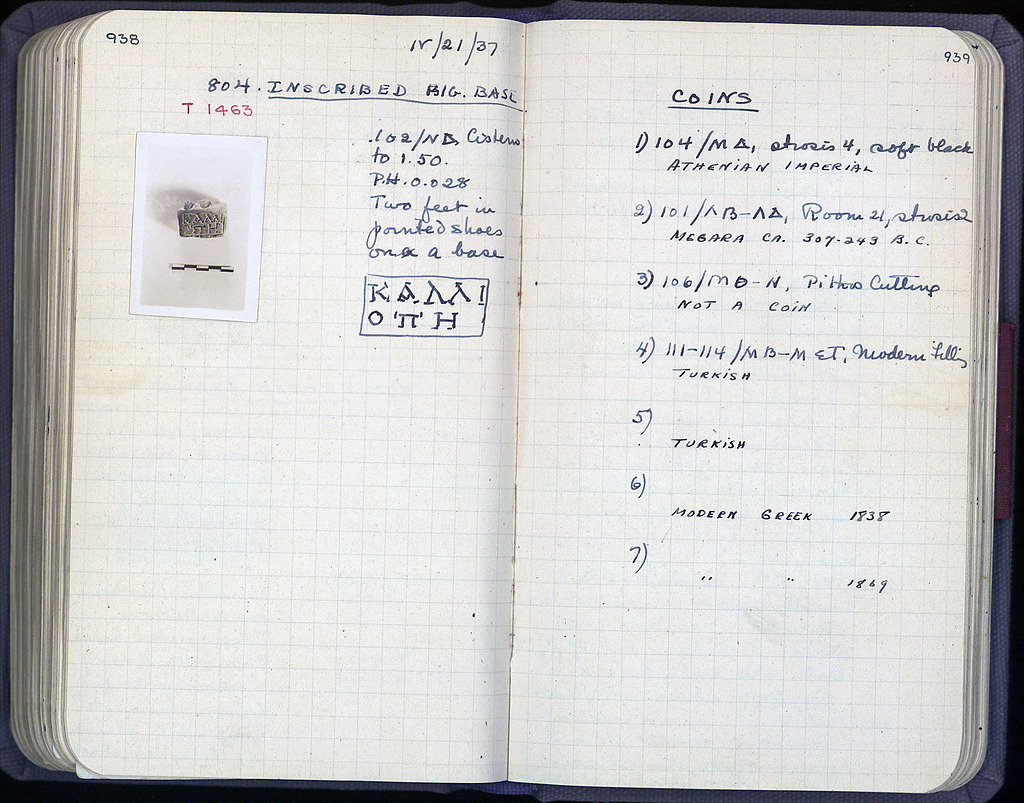 938
IV/21/37
804. INSCRIBED FIG. BASE
T 1463
.102/ΝΔ, Cistern
to 1.50.
P.H. 0.028
Two feet in
pointed shoes
on a base
ΚΑΛΛΙ
ΟΠΗ
939
COINS
1) 104/ΜΔ, strosis 4, soft black
ATHENIAN IMPERIAL
2) 101/ΛΒ-ΛΔ, Room 21, strosis 2
MEGARA CA. 307-243 B.C.
3) 106/ΜΘ-Ν, Pithos Cutting
NOT A COIN
4) 111-114/ΜΒ-ΜΣΤ, Modern Filling
TURKISH
5)
TURKISH
6)
MODERN GREEK 1838
7)
" " 1869